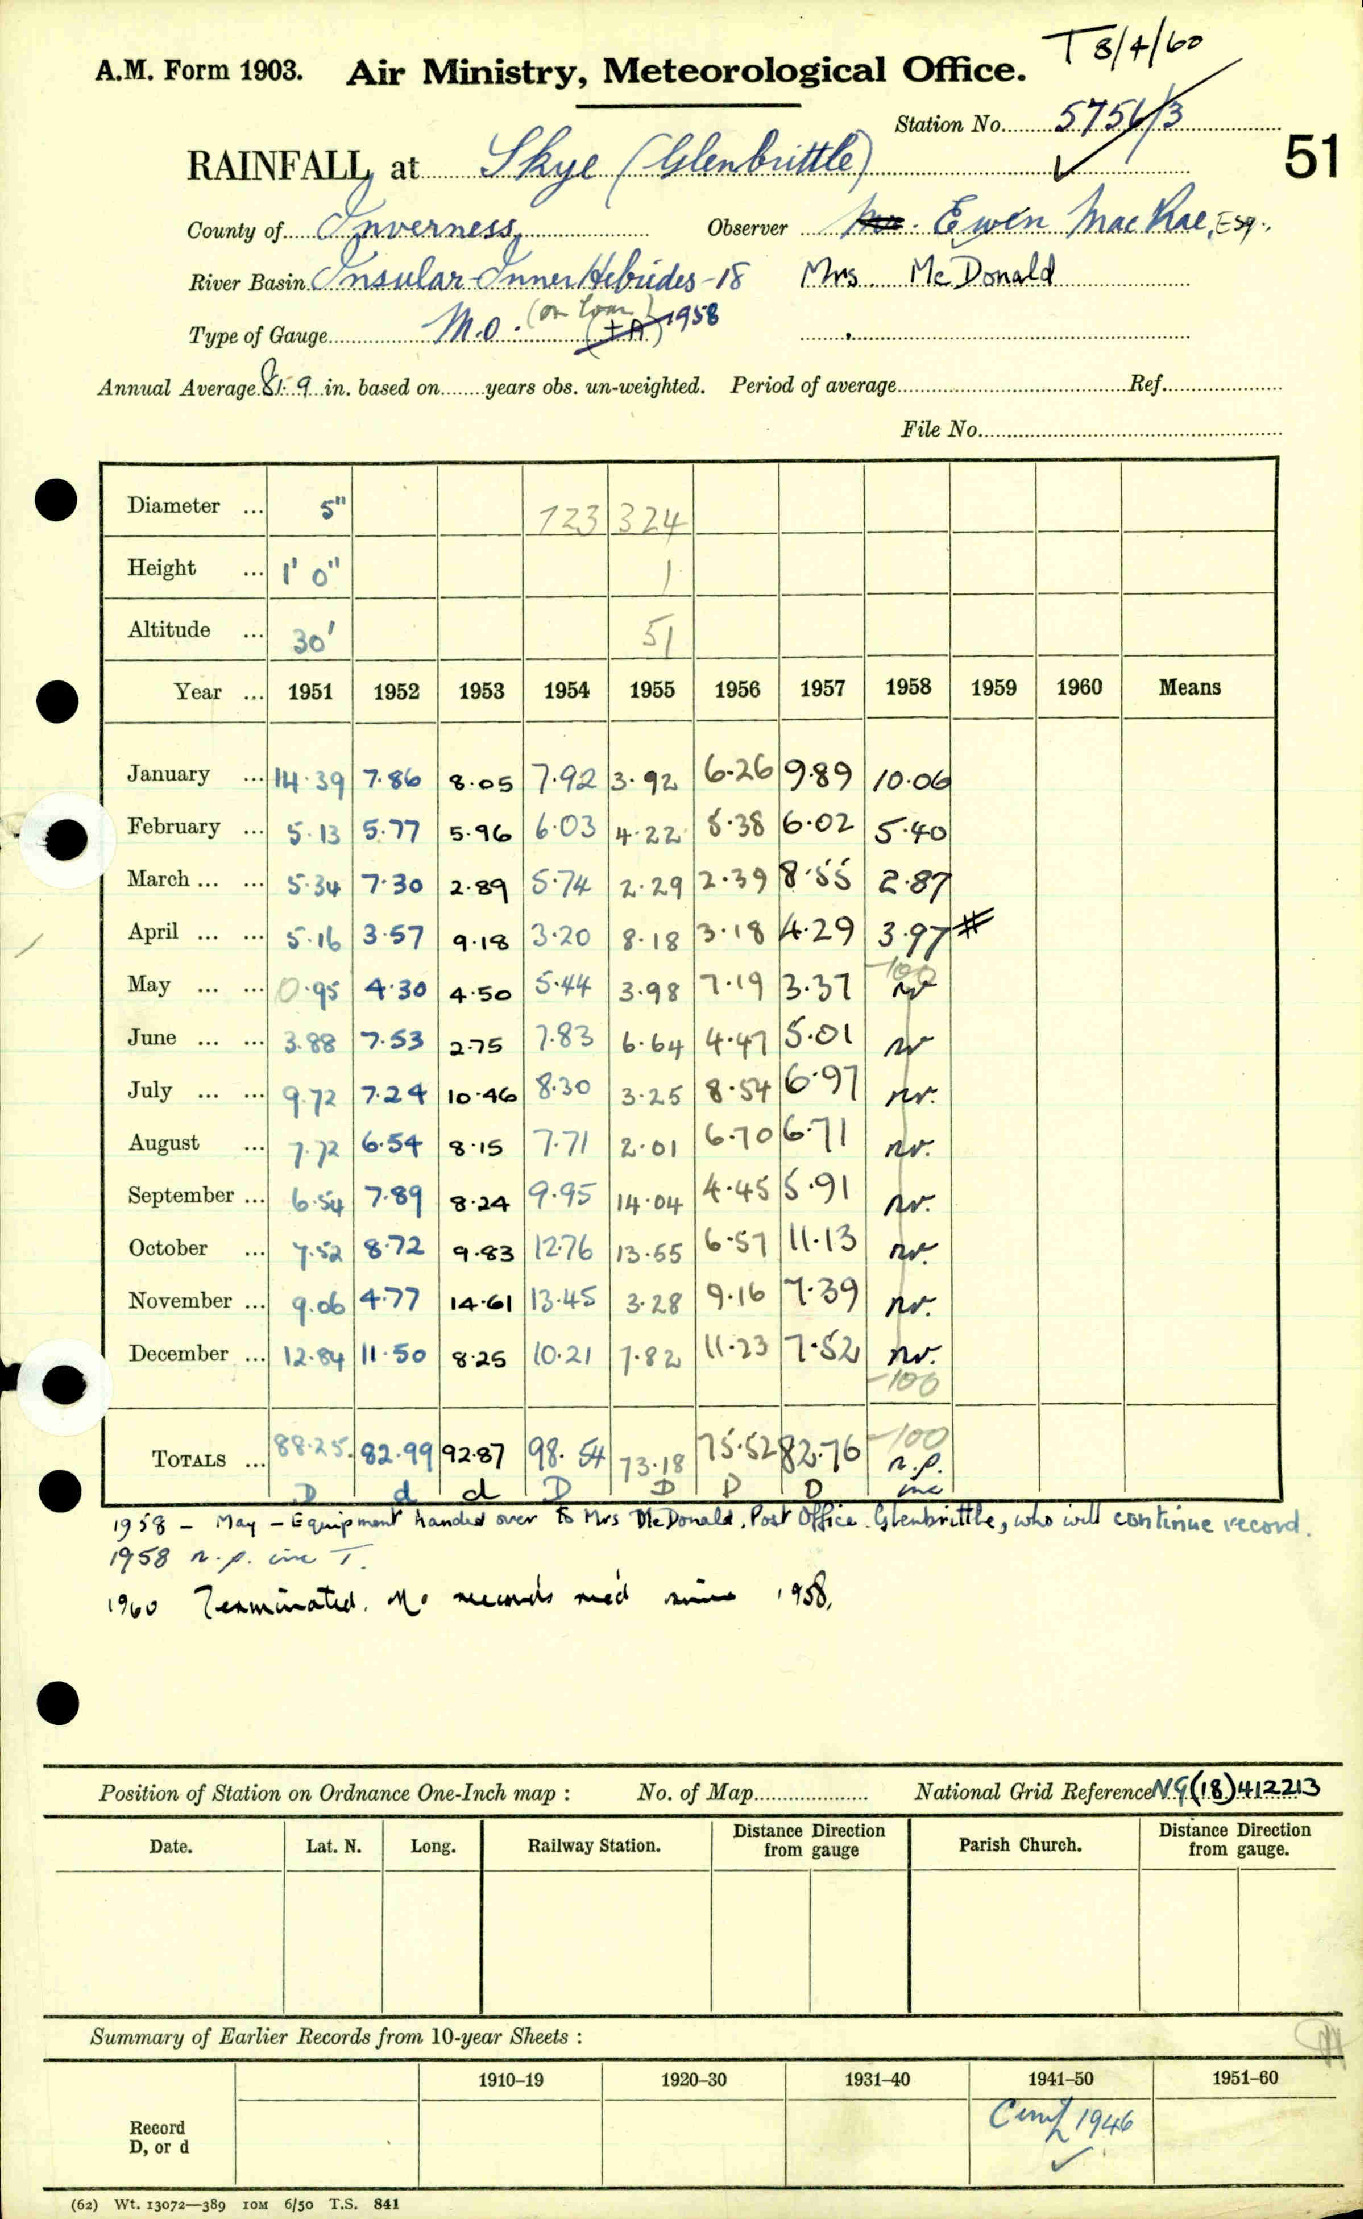 T 8/4/60
A.M. Form 1903. Air Ministry, Meteorological Office.
Station No. 5756/3
51
RAINFALL at Skye (Glenbrittle)
County of Inverness Observer Mr. Ewen MacRae, Esq.,
River Basin Insular-Inner Hebrides-18 Mrs. McDonald
Type of Gauge M.O. (on loan) (+A) 1958
Annual Average 81.9 in. based on years obs. un-weighted. Period of average Ref.
File No.
Diameter ... 5" 123 324
Height ... 1' 0" 1
Altitude ... 30' 51
Year ... 1951 1952 1953 1954 1955 1956 1957 1958 1959 1960 Means
January ... 14.39 7.86 8.05 7.92 3.92 6.26 9.89 10.06
February ... 5.13 5.77 5.96 6.03 4.22 5.38 6.02 5.40
March ... ... 5.34 7.30 2.89 5.74 2.29 2.39 8.55 2.87
April ... ... 5.16 3.57 9.18 3.20 8.18 3.18 4.29 3.97 #
May ... ... 0.95 4.30 4.50 5.44 3.98 7.19 3.37 -100 nr
June ... ... 3.88 7.53 2.75 7.83 6.64 4.47 5.01 nr
July ... ... 9.72 7.24 10.46 8.30 3.25 8.54 6.97 nr.
August ... 7.72 6.54 8.15 7.71 2.01 6.70 6.71 nr.
September ... 6.54 7.89 8.24 9.95 14.04 4.45 5.91 nr.
October ... 7.52 8.72 9.83 12.76 13.55 6.57 11.13 nr.
November ... 9.06 4.77 14.61 13.45 3.28 9.16 7.39 nr.
December ... 12.84 11.50 8.25 10.21 7.82 11.23 7.52 nr.
-100
TOTALS ... 88.25. 82.99 92.87 98.54 73.18 75.52 82.76 -100 n.p.
D d d D D D D inc
1958 - May - Equipment handed over to Mrs McDonald, Post Office, Glenbrittle, who will continue record.
1958 n.p. inc T.
1960 Terminated. No records rec'd since 1958.
Position of Station on Ordnance One-Inch map : No. of Map National Grid Reference NG(18)412213
Date. Lat. N. Long. Railway Station. Distance from gauge Direction Parish Church. Distance from gauge. Direction
Summary of Earlier Records from 10-year Sheets :
1910–19 1920–30 1931–40 1941–50 1951–60
Record D, or d 1946
(62) Wt. 13072—389 10M 6/50 T.S. 841